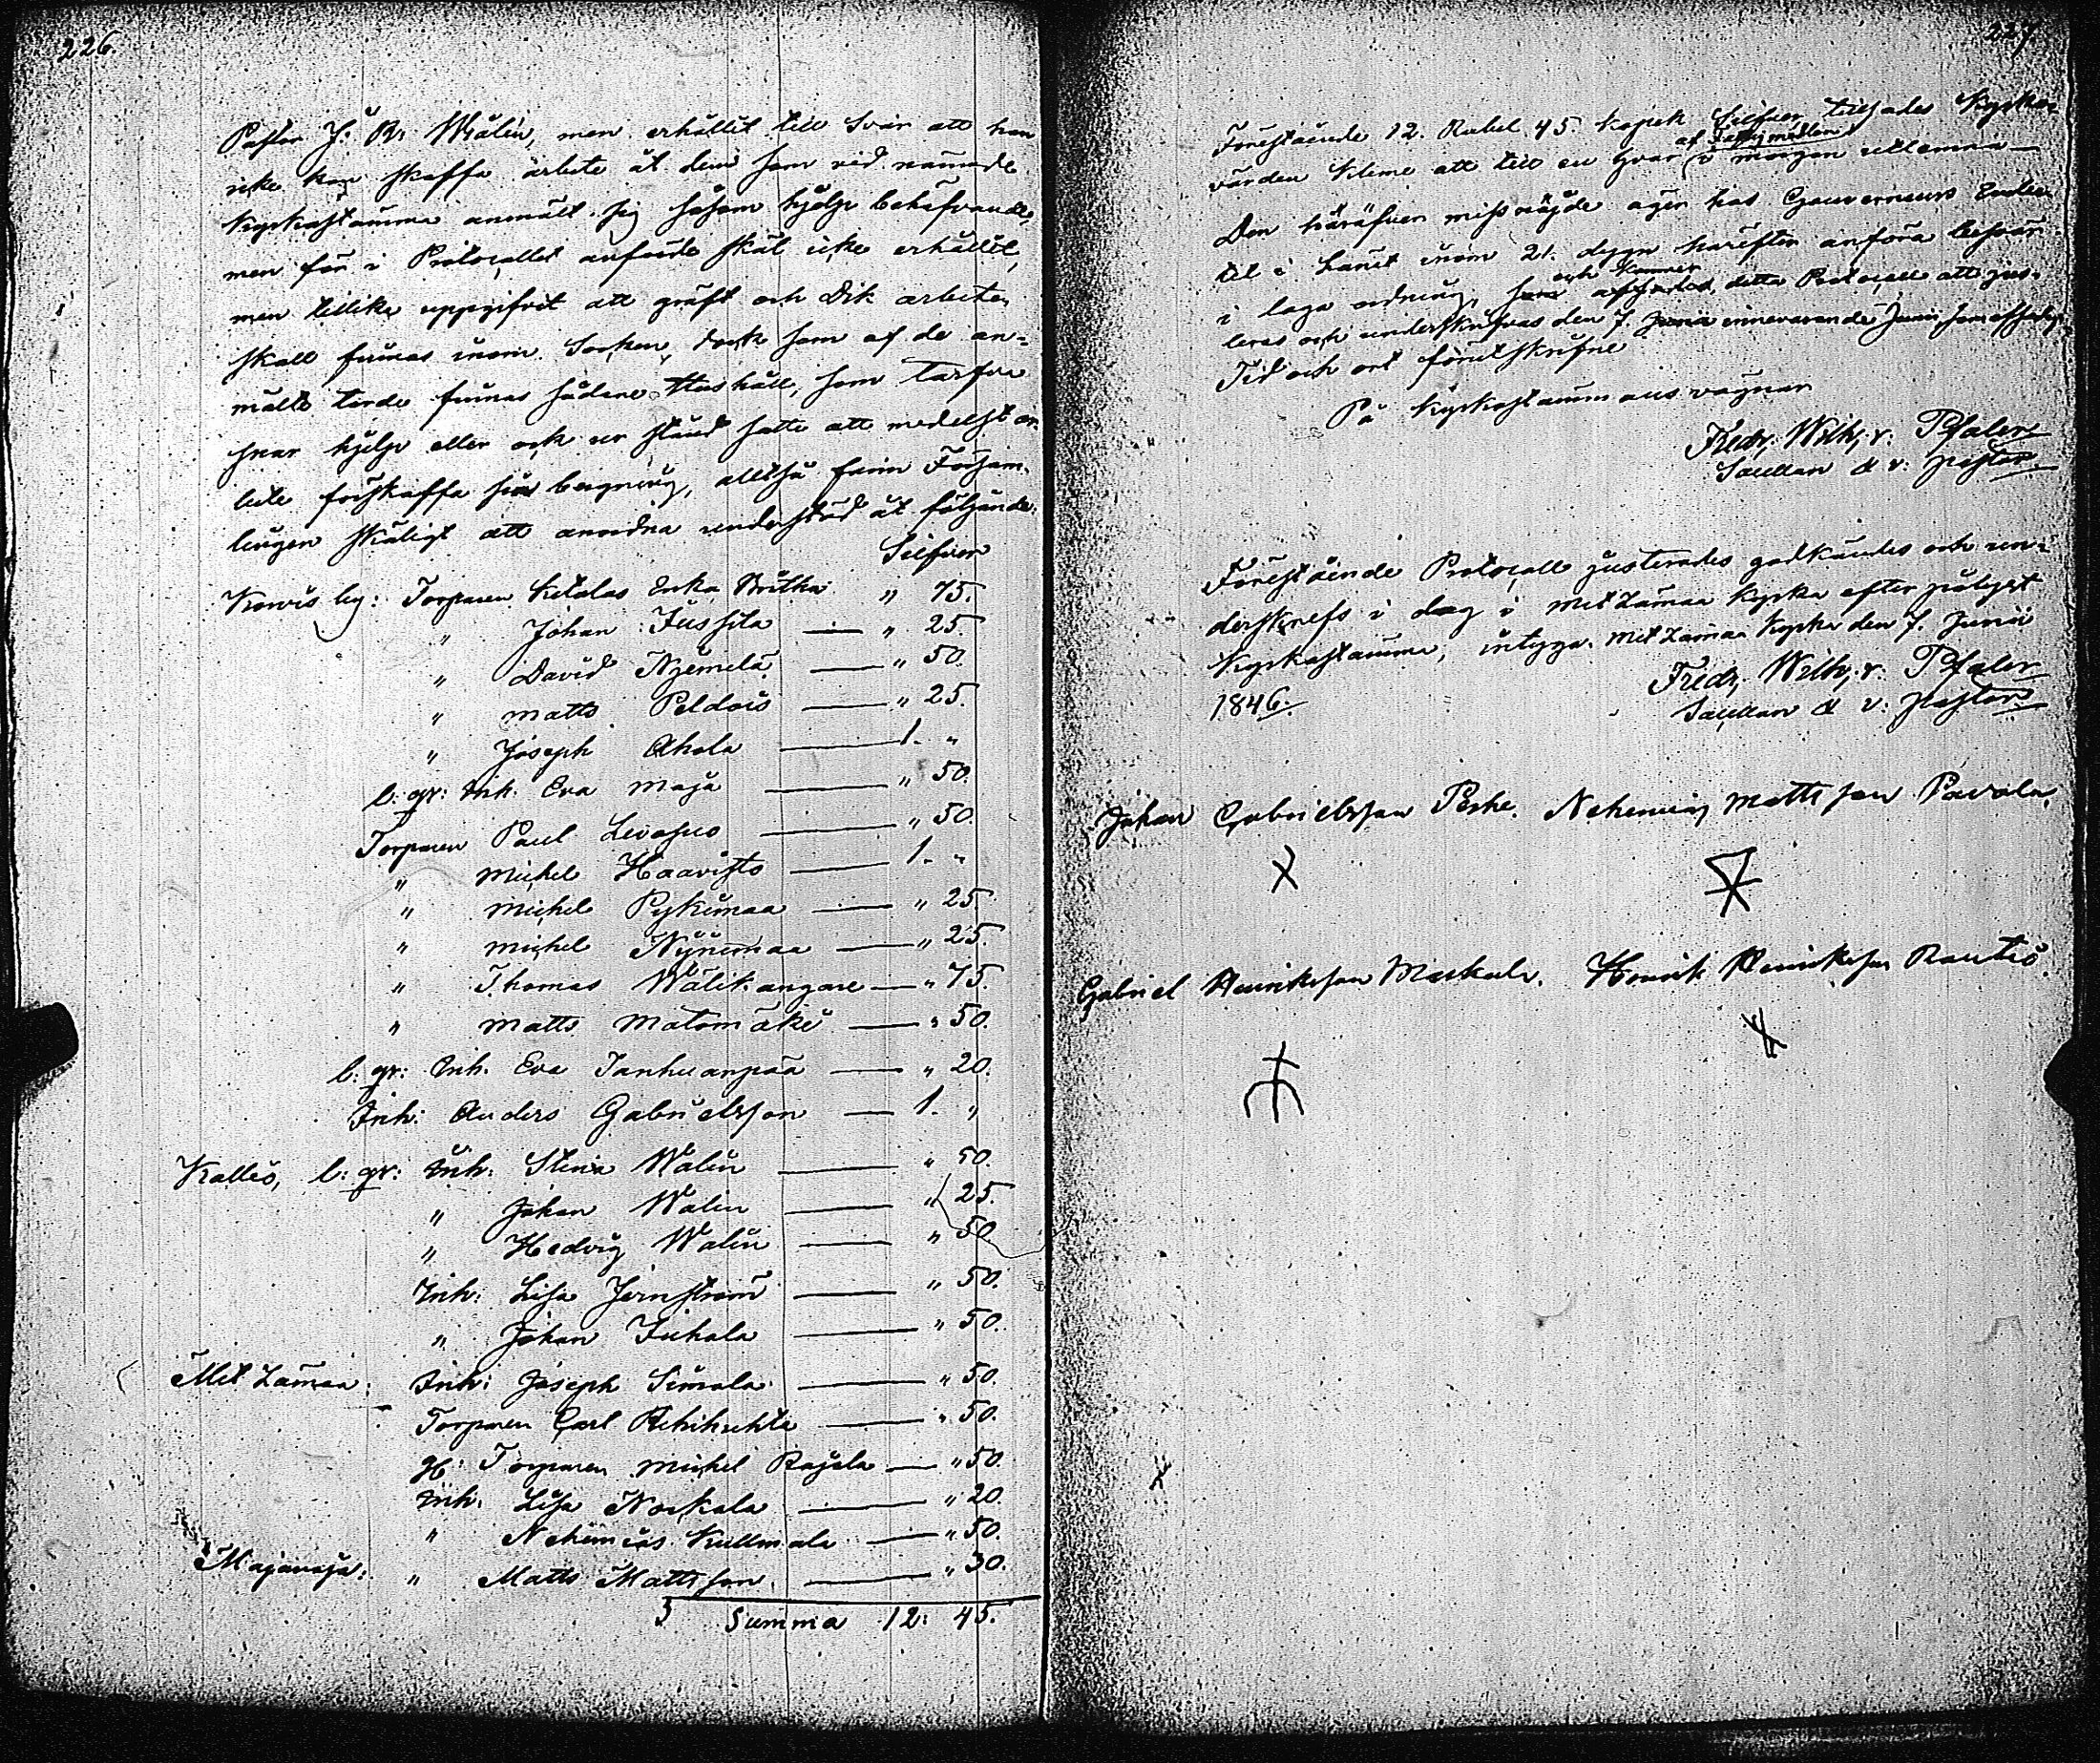 226.
Pastor J: Br: Wälin, men erhållit till Svar att han
icke kan skaffa arbete åt dem som vid nämnde
Kyrkostämma anmält sig såsom hjelp behöfvande,
men för i Protocollet anförde skäl icke erhållit,
men tillika uppgifvit att gräft och Dik arbeten
skall finnas inom Socken, dock som af de an-
mälte torde finnas sådane Hushåll, som tarfva
snar hjelp eller ock ur stånd satte att medelst ar-
bete förskaffa sin bergning, alltså fann Försam-
lingen skäligt att anordna understöd åt följande:
Silfver
Torparen Erika " 75.
" Johan Jussila — " 25.
" David Nyemelä — " 50.
" Matts Peldois — " 25.
" Joseph Ahola — 1. "
b: gr: Inh. Eva Maja — " 50.
Torparen Paul Levasuo — " 50.
" Michel Haavisto — 1. "
" Michel Pykimaa — " 25.
" Michel Nynemaa — " 25.
" Thomas Wälikangare — " 75.
" Matts Matomäki — " 50.
b: gr: Inh. Eva Tanhuanpää — " 20.
Inh: Anders Gabrielsson — 1. "
Kallio, b: gr: Inh: Stina Walin — " 50.
" Johan Walin — " 25.
" Hedvig Walin — " 50.
Inh: Lisa Jernström — " 50.
" Johan Juhola — " 50.
Metzämaa: Inh: Joseph Simola — " 50.
Torparen Carl — " 50.
H: Torparen Michel Rajala — " 50.
Inh: Lisa Norkala — " 20.
" Nehemias Kullmala — " 50.
Majanoja: " Matts Mattsson — " 30.
Summa 12: 45.
227
Förestående 12. Rubel 45. kopek Silfver tillsades Kyrko-
af Fattigmedlen
värden att till en hvar i morgon utlemna —
Den häröfver missnöjde äger hos Gouverneurs Embe-
tet i Länet inom 21. dygn härefter anföra besvär
och kommer
i laga ordning, detta Protocoll att jus-
teras och underskrifvas den 7. Junii innevarande Juni,
Tid och ort förutskrifne
På Kyrkostämmans vägnar
Fredr: Wilh: v: Pfaler
Sacellan & v: pastor
Förestående Protocoll justerades godkändes och un-
derskrefs i dag i Metzämaa Kyrka efter pålyst
Kyrkostämma, intygar. Metzämaa Kyrka den 7. Junii
1846.
Fredr: Wilh: v: Pfaler
Sacellan & v: pastor
Johan Gabrielsson Peske. Nehemias Mattsson Pavola.
Gabriel Henriksson Markula. Henrik Henriksson Rautio.